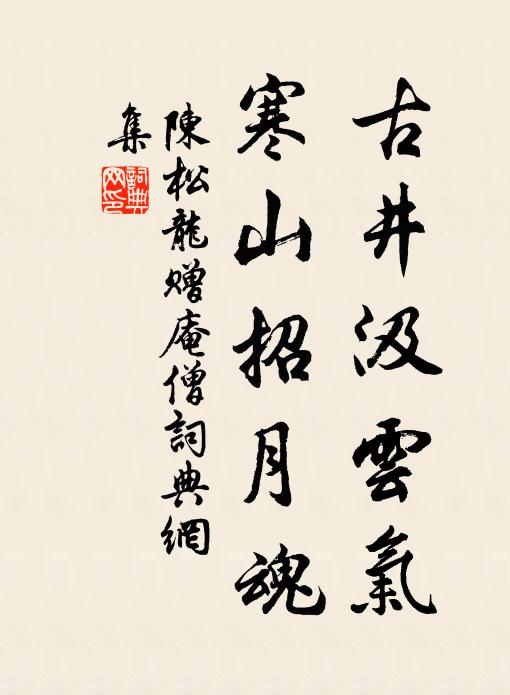 古井汲雲氣
寒山招月魂
陳松龍贈庵僧詞典網
集
詞典
网印